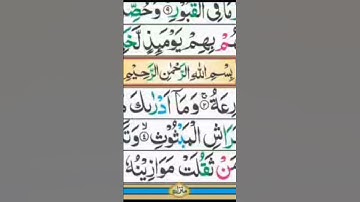 مَا فِي الْقُبُوْرِ ۙ۹ وَحُصِّ
هُمْ بِهِمْ يَوْمَئِذٍ لَّخَ
بِسْمِ اللّٰهِ الرَّحْمٰنِ الرَّحِيْمِ
رِعَةُ ۚ۲ وَمَاۤ اَدْرٰىكَ مَ
رَاشِ الْمَبْثُوْثِ ۙ۴ وَتَ
مَنْ ثَقُلَتْ مَوَازِيْنُهٗ